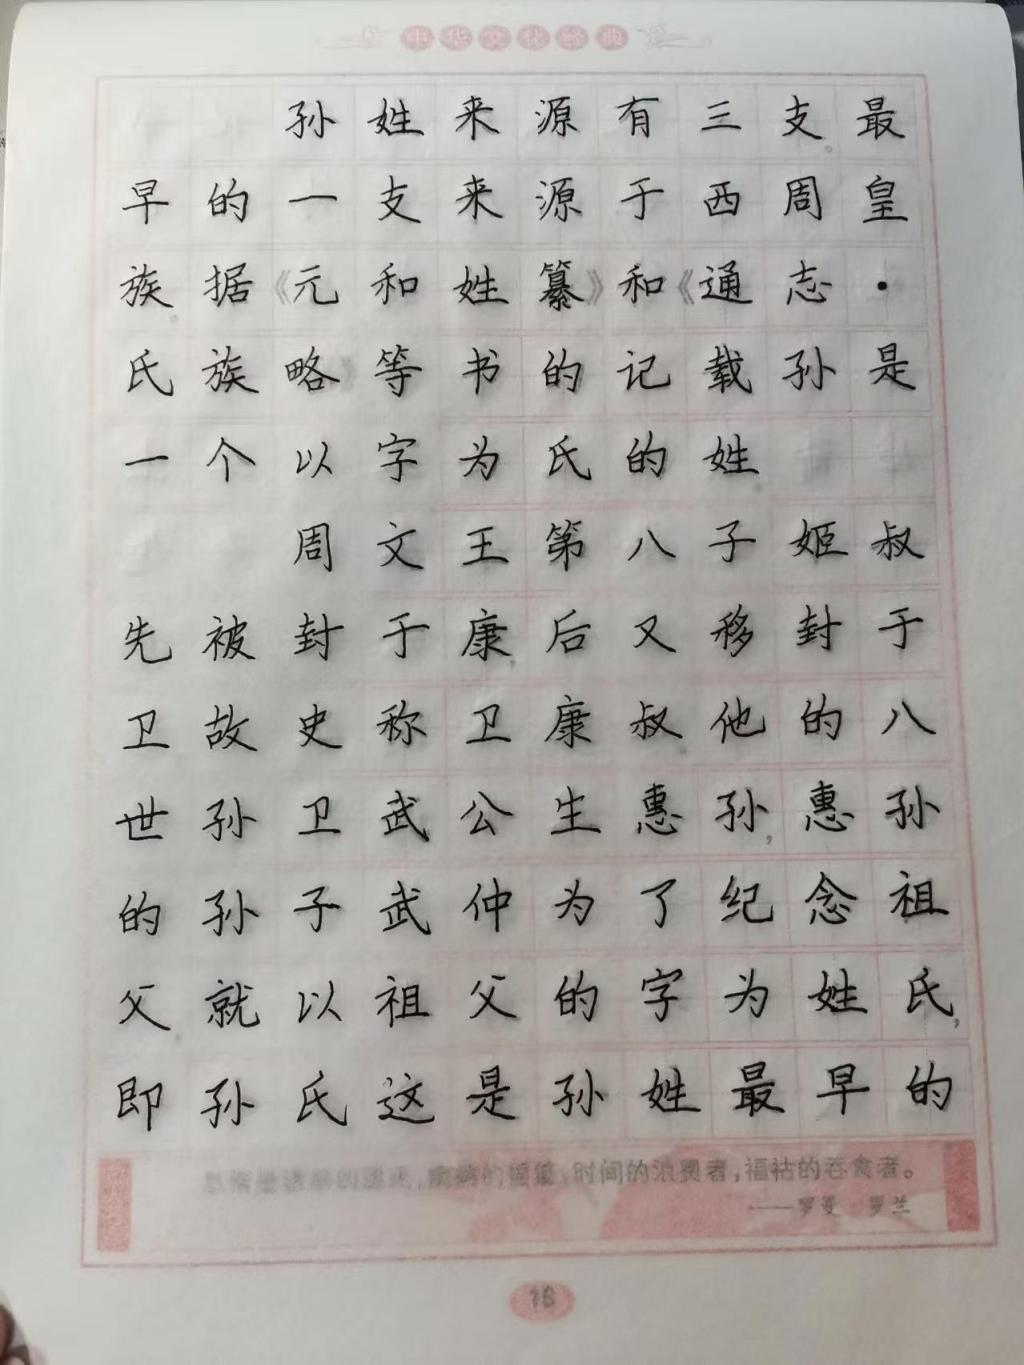 中华文化经典
孙姓来源有三支。最
早的一支来源于西周皇
族。据《元和姓纂》和《通志·
氏族略》等书的记载孙是
一个以字为氏的姓。
周文王第八子姬叔
先被封于康,后又移封于
卫故史称卫康叔。他的八
世孙卫武公生惠孙,惠孙
的孙子武仲为了纪念祖
父,就以祖父的字为姓氏,
即孙氏这是孙姓最早的
时间的浪费者,福祜的吞食者。
——罗曼·罗兰
18